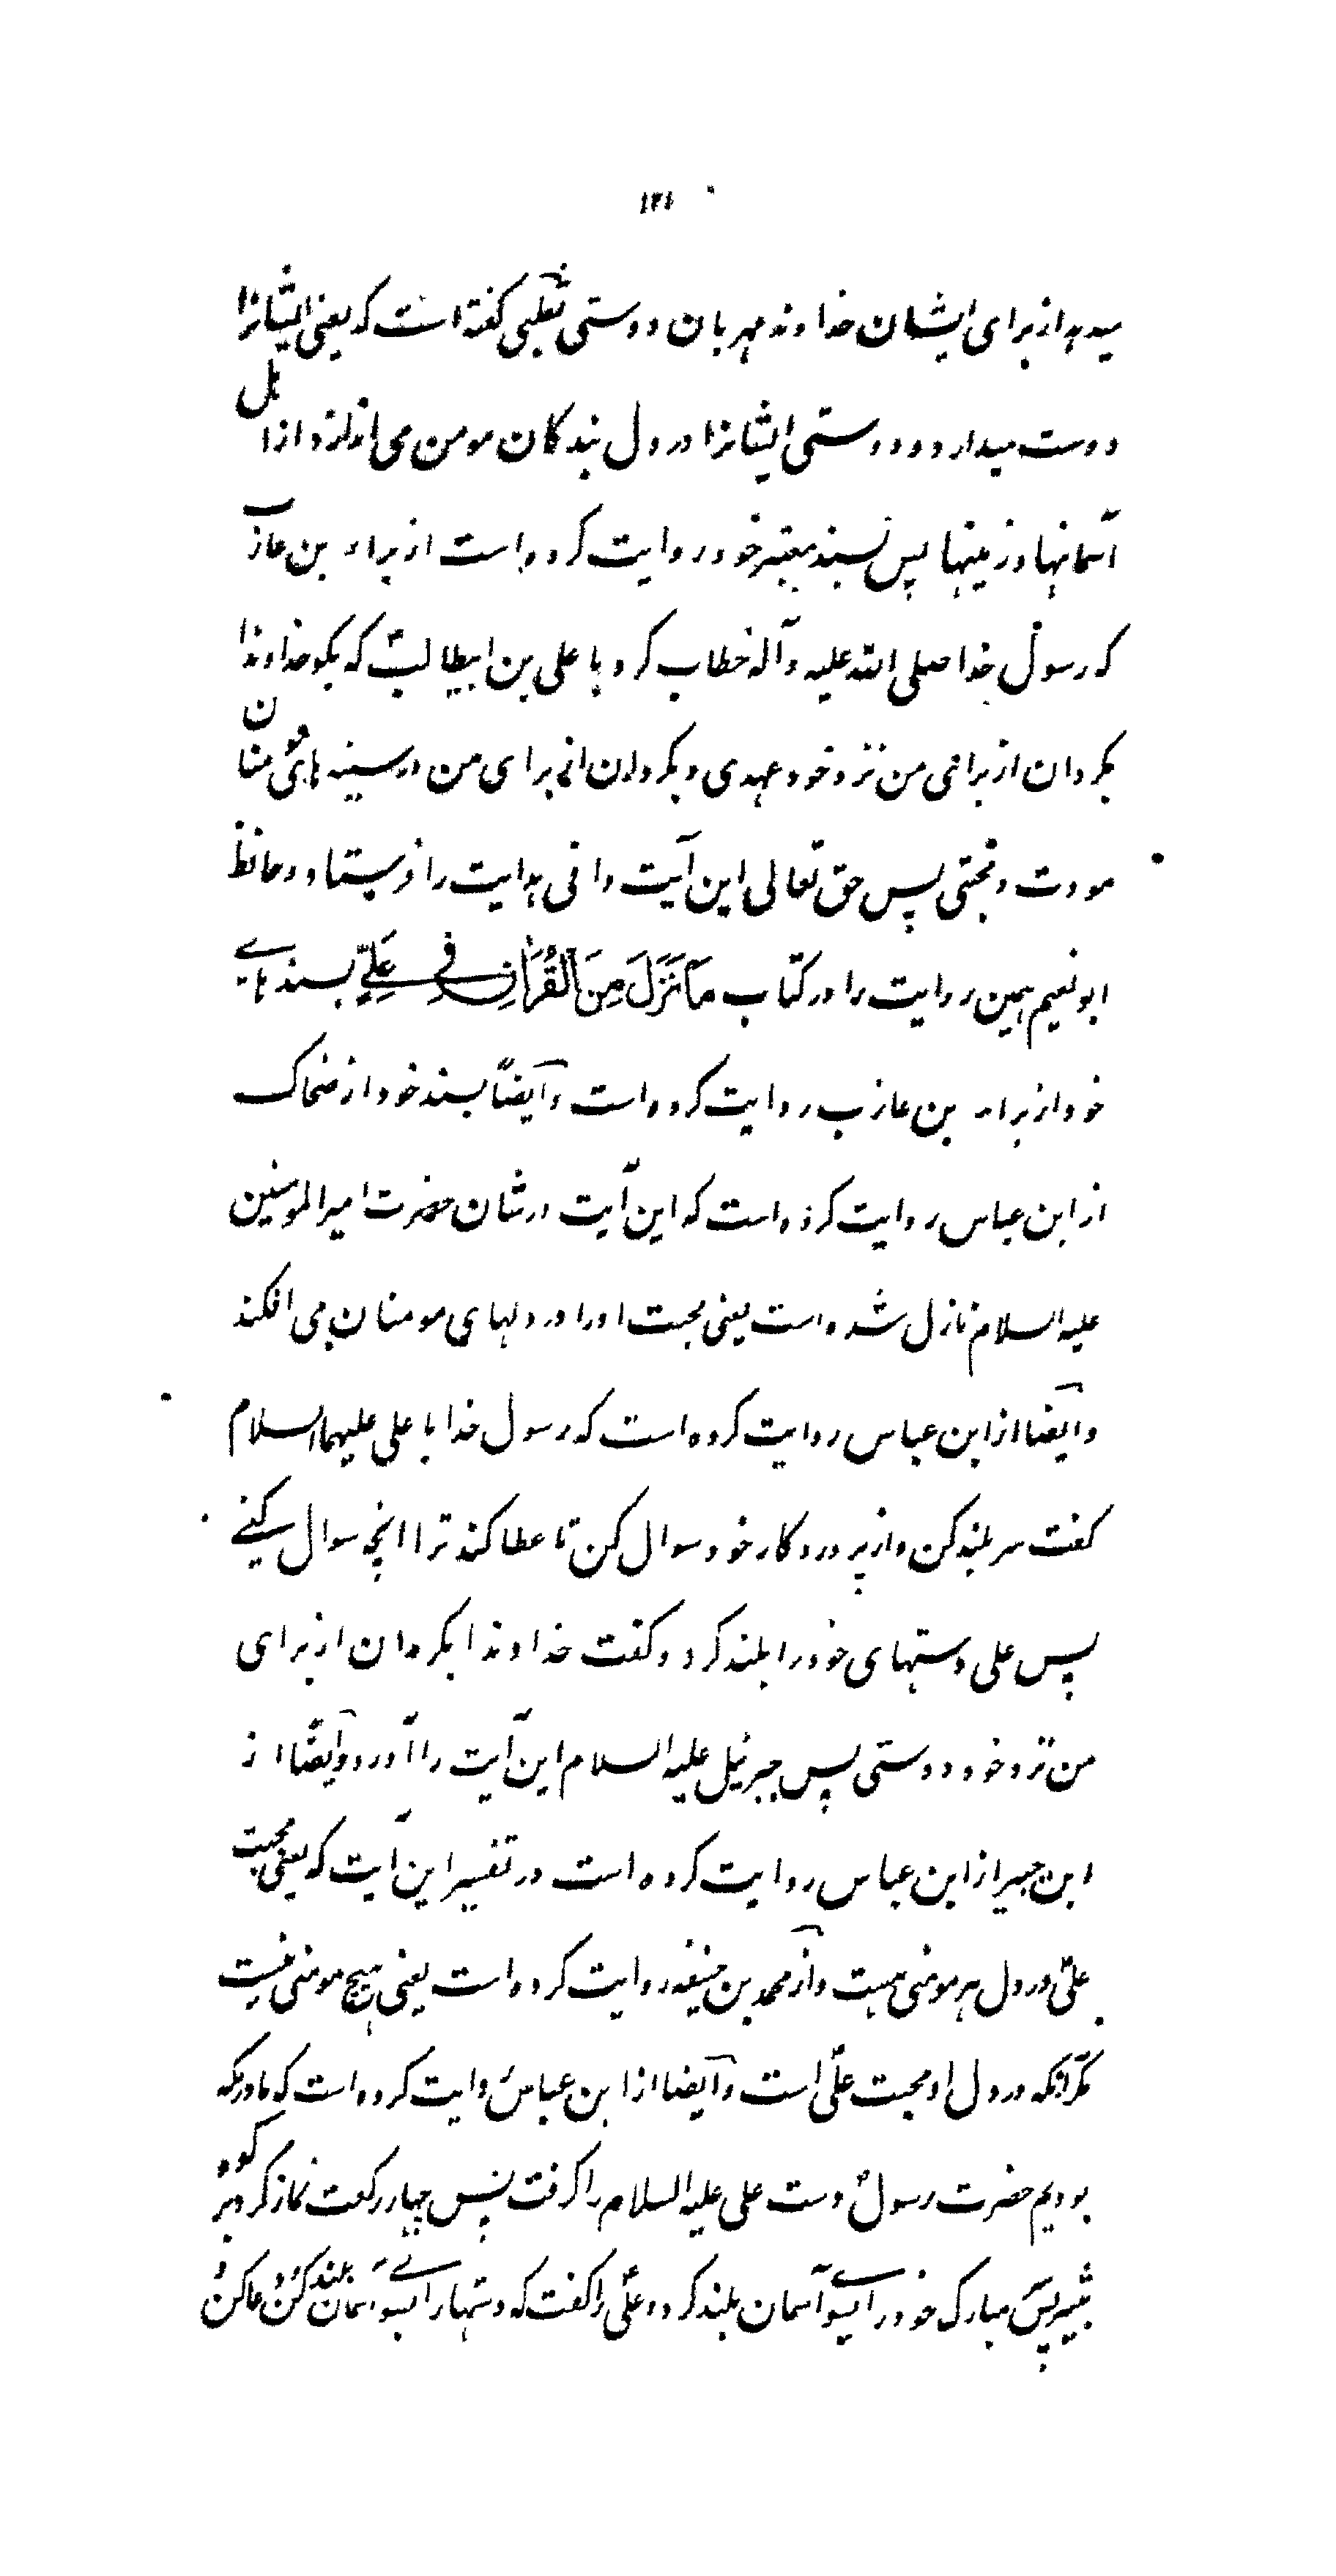 ۱۲۱
میدهد از برای ایشان خداوند مهربان دوستی ثعلبی گفته است که یعنی ایشانرا
دوست میدارد و دوستی ایشانرا در دل بندگان مومن می اندازد از اهل
آسمانها و زمینها پس بسند معتبر خود روایت کرده است از براء بن عازب
که رسول خدا صلی الله علیه وآله خطاب کرد با علی بن ابیطالب که بگو خداوندا
بگردان از برای من نزد خود عهدی و بگردان از برای من در سینه های مومنان
مودت و محبتی پس حق تعالی این آیت وافی هدایت را فرستاد و حافظ
ابونعیم همین روایت را در کتاب مَا نَزَلَ مِنَ الْقُرْاٰنِ فِی عَلِیٍّ بسندهاے
خود از براء بن عازب روایت کرده است و ایضاً بسند خود از ضحاک
از ابن عباس روایت کرده است که این آیت در شان حضرت امیرالمومنین
علیه السلام نازل شده است یعنی محبت او را در دلهای مومنان می افکند
و ایضا از ابن عباس روایت کرده است که رسول خدا با علی علیهما السلام
گفت سر بلند کن و از پروردگار خود سوال کن تا عطا کند ترا انچه سوال کنے
پس علی دستهای خود را بلند کرد و گفت خداوندا بگردان از برای
من نزد خود دوستی پس جبرئیل علیه السلام این آیت را آورد و ایضًا از
ابن جبیر از ابن عباس روایت کرده است در تفسیر این آیت که یعنی محبت
علی در دل هر مومنی هست و از محمد بن حنیفه روایت کرده است یعنی هیچ مومنی نیست
مگر آنکه در دل او محبت علی است و ایضا از ابن عباس روایت کرده است که ما در مکه
بودیم حضرت رسول دست علی علیه السلام را گرفت پس چهار رکعت نماز کرد بر کوه
ثبیر پس مبارک خود را بسوے آسمان بلند کرد و علی را گفت که دستها را بسوے آسمان بلند کن و دعا کن